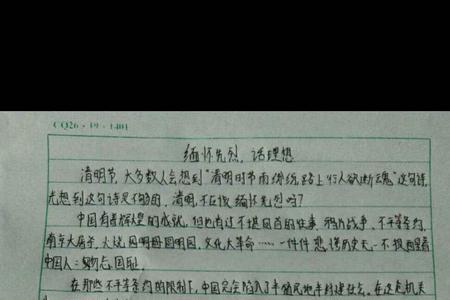 CQ26·19·1401
缅怀先烈,话理想
清明节,大多数人会想到“清明时节雨纷纷,路上行人欲断魂”这句诗,
光想到这句诗是不够的,清明,不在于缅怀先烈吗?
中国有着辉煌的成就,但也有过不堪回首的往事,鸦片战争、不平等条约,
南京大屠杀,火烧圆明园,文化大革命……一件件悲惨历史无一不提醒着
中国人:勿忘国耻。
在那些不平等条约的限制下,中国完全陷入了半殖民地半封建社会。在这危机关